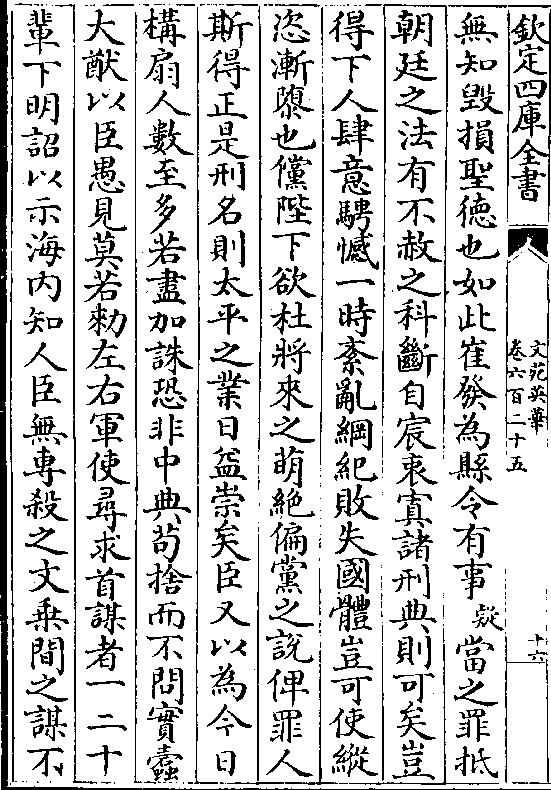 欽定四庫全書
文苑英華
卷六百二十五
十六
無知毀損聖德也如此崔發為縣令有事疑當之罪抵
朝廷之法有不赦之科斷自宸衷寘諸刑典則可矣豈
得下人肆意騁憾一時紊亂綱紀敗失國體豈可使縱
恣漸隳也儻陛下欲杜將來之萌絶偏黨之説俾罪人
斯得正是刑名則太平之業日益崇矣臣又以為今日
構扇人數至多若盡加誅恐非中典茍捨而不問實蠹
大猷以臣愚見莫若勑左右軍使尋求首謀者一二十
輩下明詔以示海内知人臣無專殺之文乗間之謀不